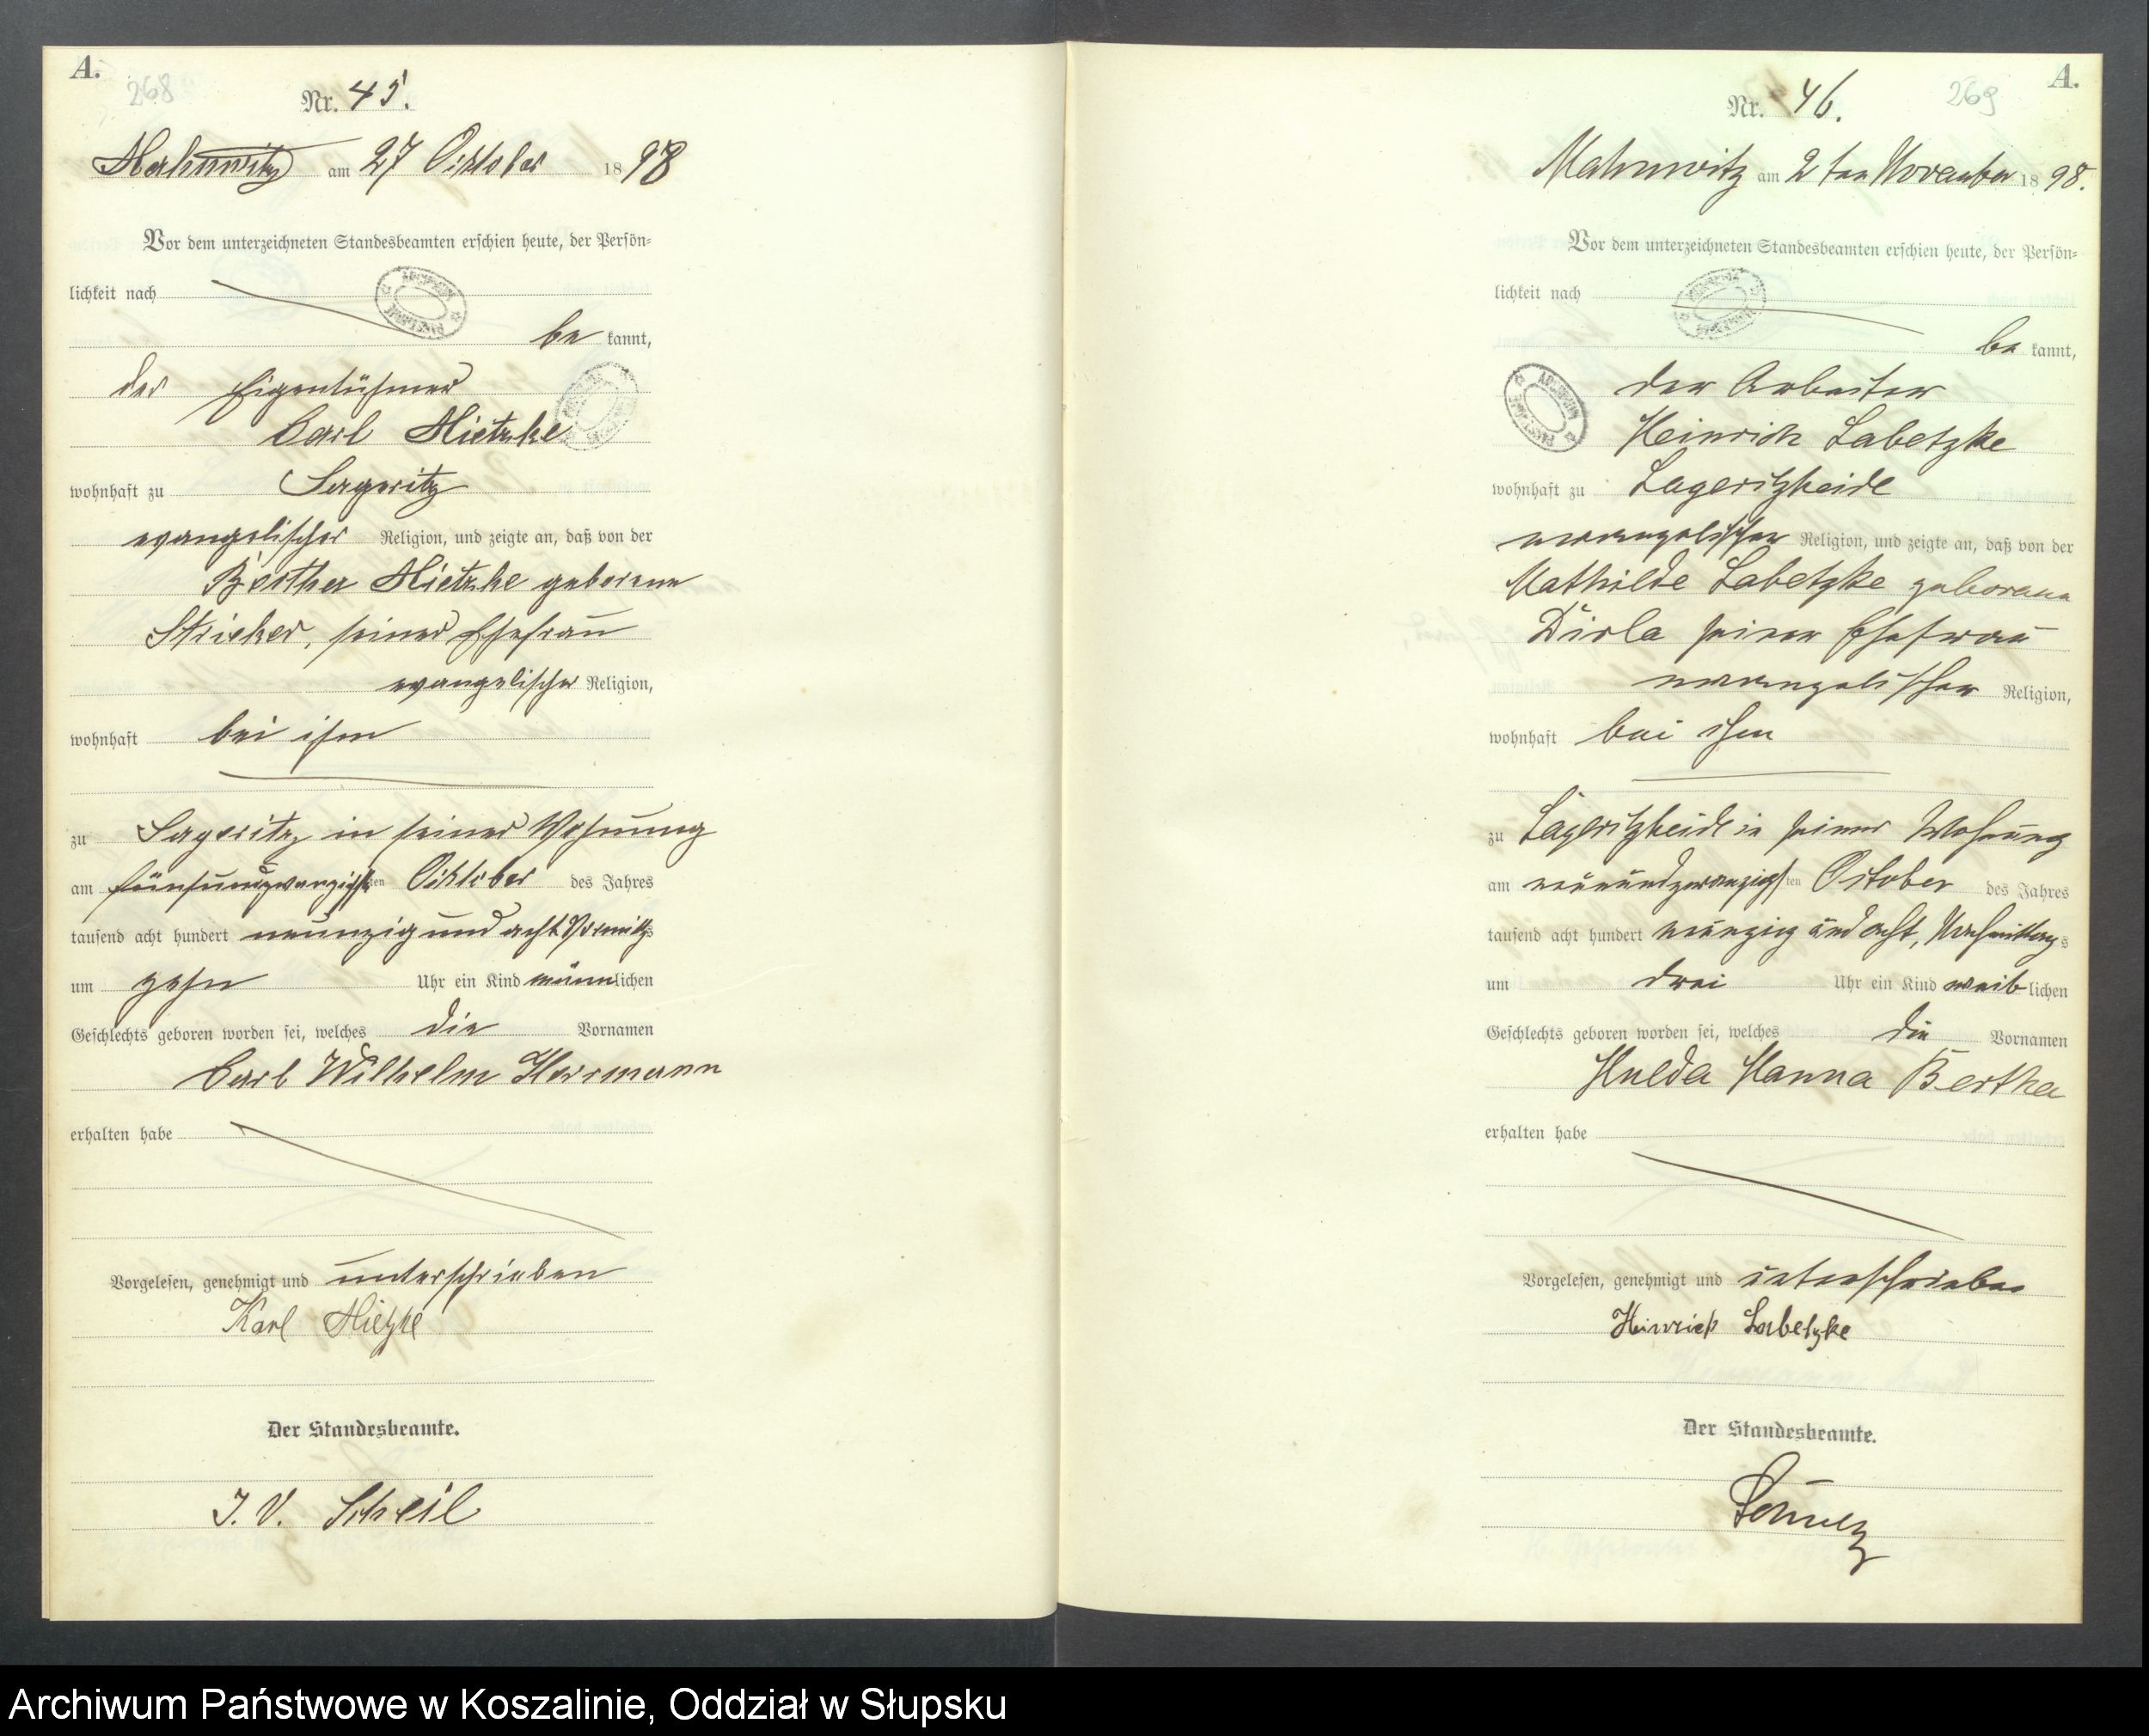 A.
268
Nr. 45.
Mahnwitz am 27 Oktober 1898
Vor dem unterzeichneten Standesbeamten erschien heute, der Persön-
lichkeit nach
be kannt,
der Eigentühmer
Carl Mietzke
wohnhaft zu Sageritz
evangelischer Religion, und zeigte an, daß von der
Bertha Mietzke geborene
Stricker, seiner Ehefrau
evangelischer Religion,
wohnhaft bei ihm
zu Sageritz in seiner Wohnung
am fünfundzwanzigsten Oktober des Jahres
tausend acht hundert neunzig und acht Vormittags
um zehn Uhr ein Kind männlichen
Geschlechts geboren worden sei, welches die Vornamen
Carl Wilhelm Herrmann
erhalten habe
Vorgelesen, genehmigt und unterschrieben
Karl Mietzke
Der Standesbeamte.
J. V. Scheil
A.
269
Nr. 46.
Mahnwitz am 2ten November 1898.
Vor dem unterzeichneten Standesbeamten erschien heute, der Persön-
lichkeit nach
be kannt,
der Arbeiter
Heinrich Labetzke
wohnhaft zu Lageritzheide
evangelischer Religion, und zeigte an, daß von der
Mathilde Labetzke geborene
seiner Ehefrau
evangelischer Religion,
wohnhaft bei ihm
zu Lageritzheide in seiner Wohnung
am neunundzwanzigsten October des Jahres
tausend acht hundert neunzig und acht, Nachmittags
um drei Uhr ein Kind weiblichen
Geschlechts geboren worden sei, welches die Vornamen
Hulda Hanna Bertha
erhalten habe
Vorgelesen, genehmigt und unterschrieben
Heinrich Labetzke
Der Standesbeamte.
Archiwum Państwowe w Koszalinie, Oddział w Słupsku